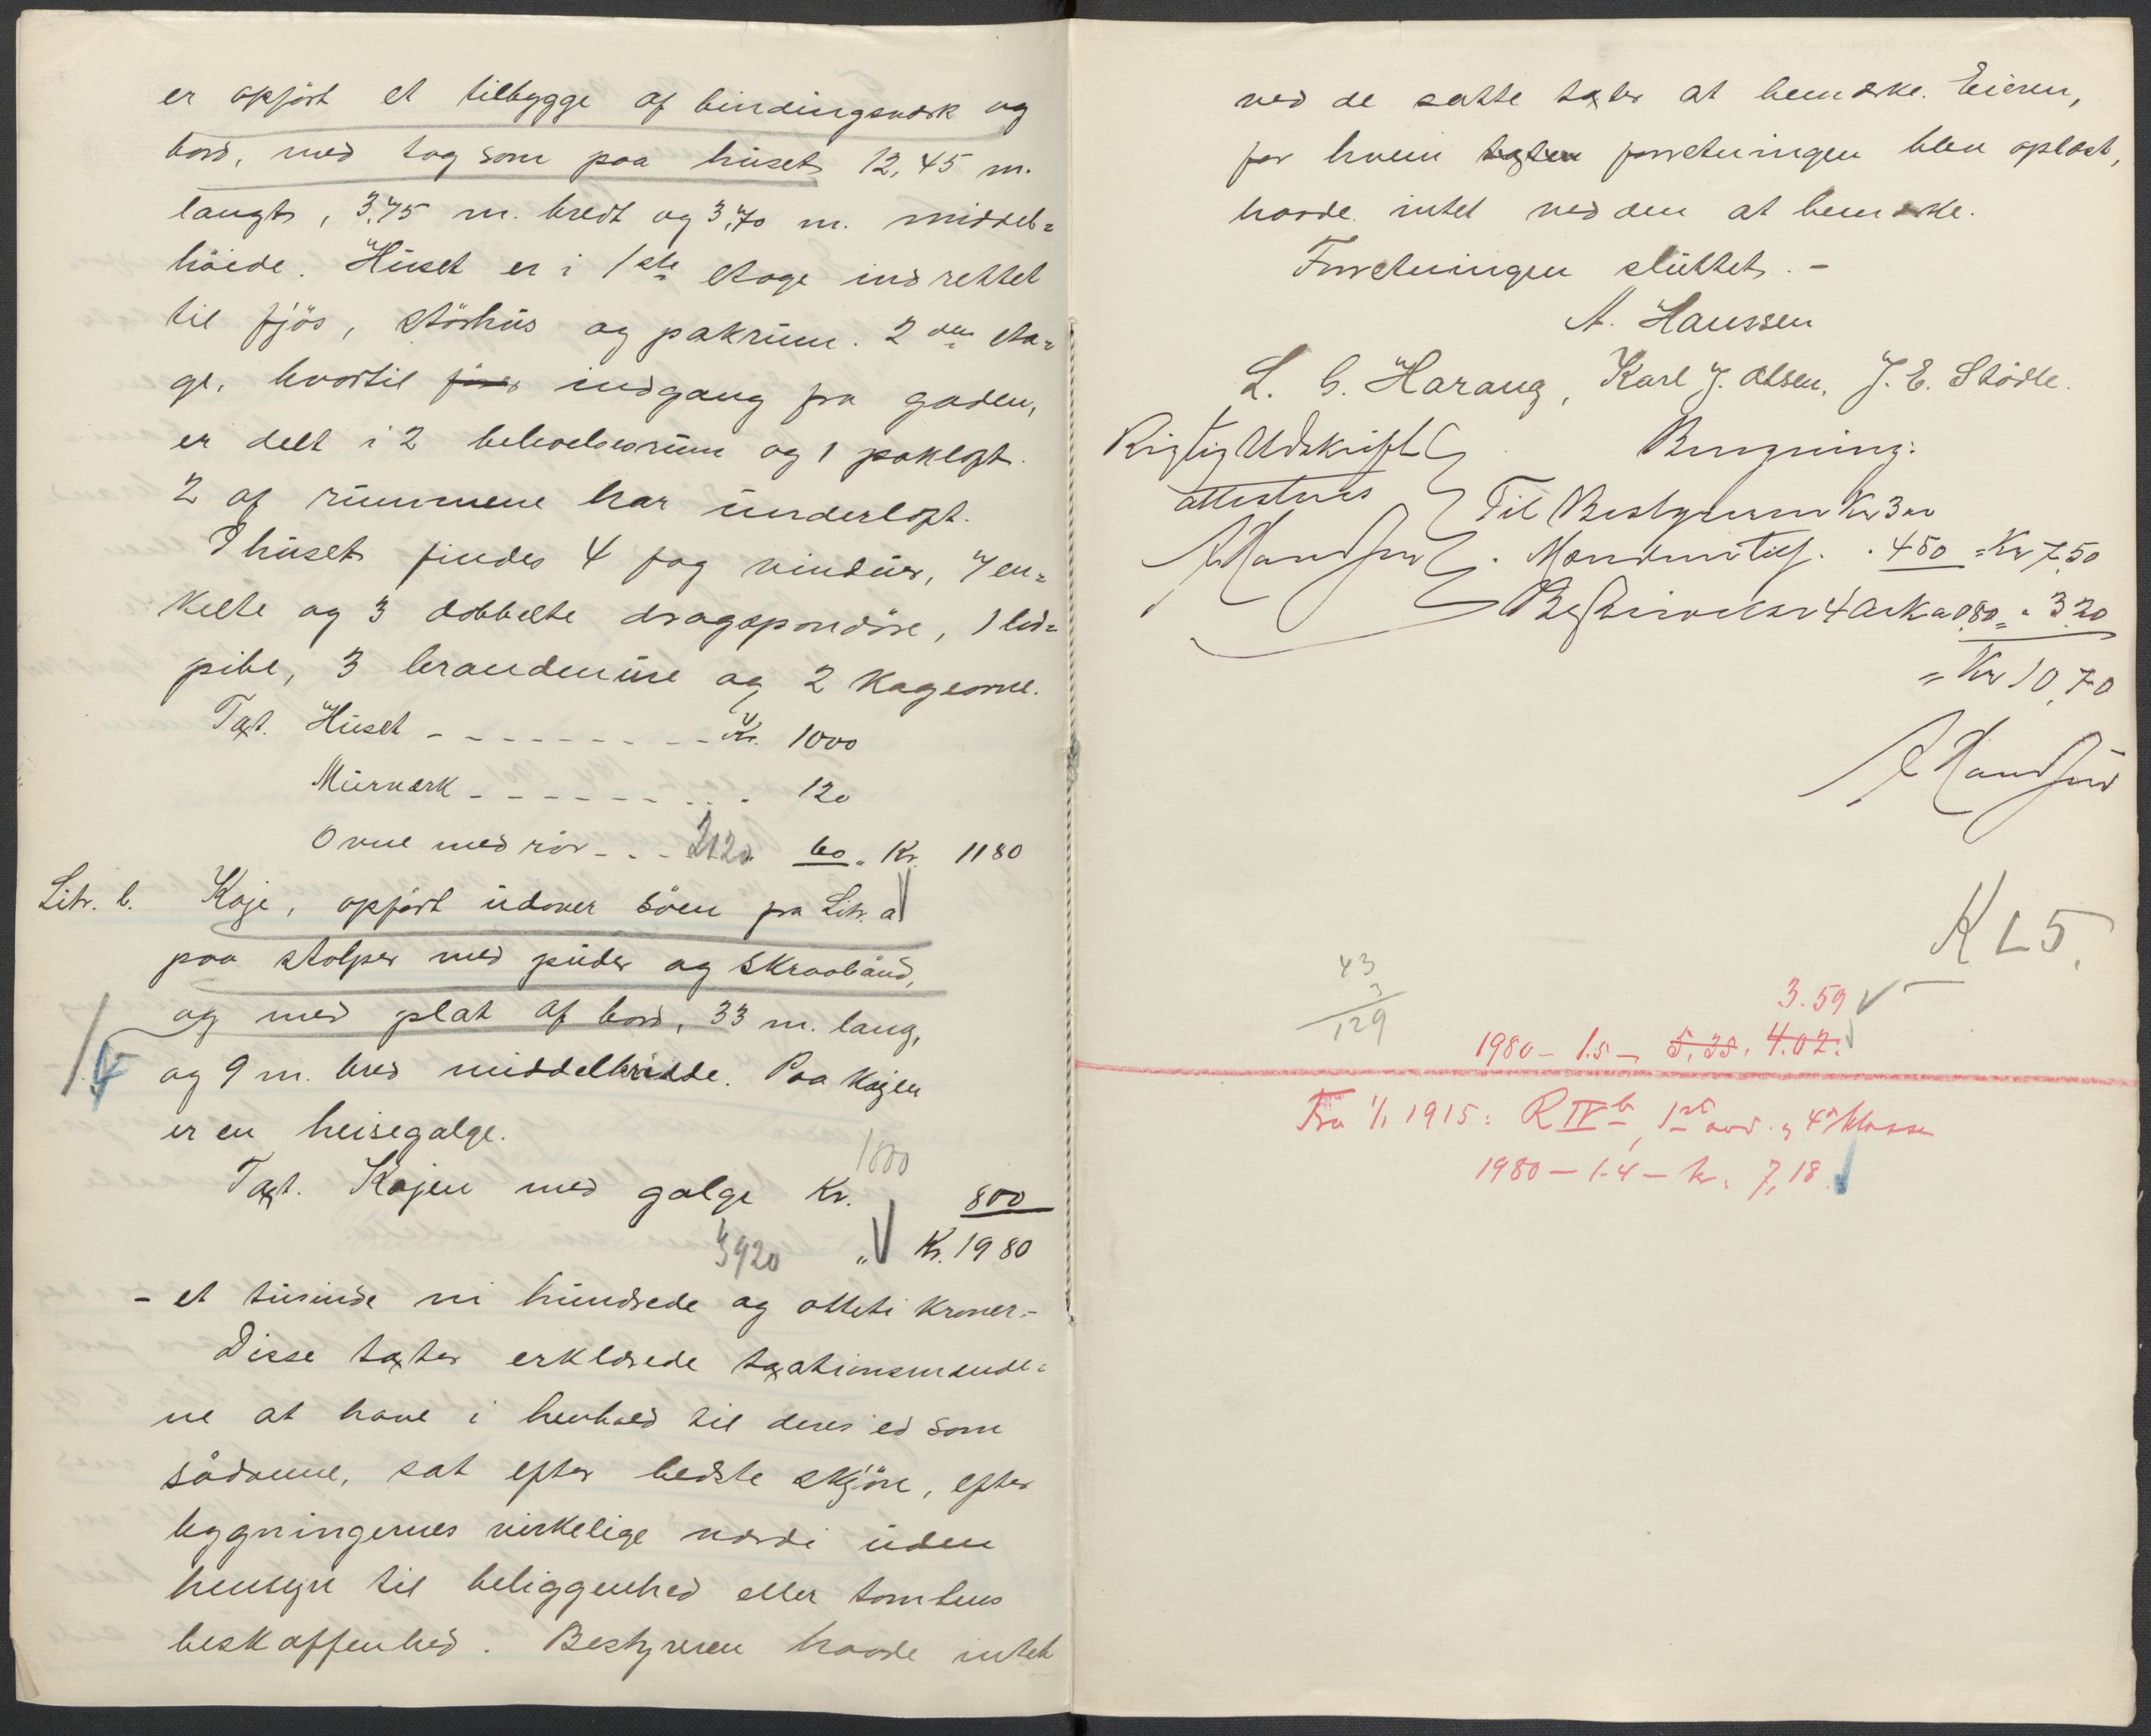 er opført et tilbygge af bindingsværk og
bord, med tag som paa huset 12,45 m.
langt, 3,75 m. bredt og 3,70 m. middel=
höide. Huset er i 1ste etage indrettet
til fjös, störhus og pakrum. 2den eta=
ge, hvortil indgang fra gaden,
er delt i 2 beboelsesrum og 1 pakloft.
2 af rummene har underloft.
I huset findes 4 fag vinduer, 7 en=
kelte og 3 dobbelte dragspondöre, 1 led=
pibe, 3 brandmure og 2 kageovne.
Taxt. Huset - - - - - - - - - Kr. 1000
Murværk - - - - - - - - - 120
Ovne med rör - - - 2120 60 = Kr. 1180
Litr. b. Kaje, opført udover söen fra Litr. a
paa stolper med puder og skraabaand,
og med plat af bord, 33 m. lang,
og 9 m. bred middelbredde. Paa kajen
er en heisegalge.
1800
Taxt. Kajen med galge Kr. 800
3920 " Kr. 1980
- et tusinde ni hundrede og otteti kroner.-
Disse taxter erklærede taxationsmænde=
ne at have i henhold til deres ed som
sådanne, sat efter bedste skjön, efter
bygningernes virkelige værdi uden
hensyn til beliggenhed eller tomtens
beskaffenhed. Bestyreren havde intet
ved de satte taxter at bemærke. Eieren,
for hvem taxten forretningen blev oplæst,
havde intet ved den at bemærke.
Forretningen sluttet. -
A. Hanssen
L. C. Harang, Karl J. Olsen, J. E. Stödle.
Rigtig Udskrift
attesteres
Beregning:
Til Bestyreren Kr 3 00
A Hanssen
" Mændene tils. " 4 50 = Kr 7,50
Beskrivelse 4 Ark a 0.80 = " 3.20
= Kr 10,70
A Hanssen
K L 5.
43
3
129
3.59
1980 - 1.5 - 5.35. 4.02.
Fra 1/1 1915: R IV b, 1st avd. og 4d klasse
1980 - 1.4 - kr. 7,18.